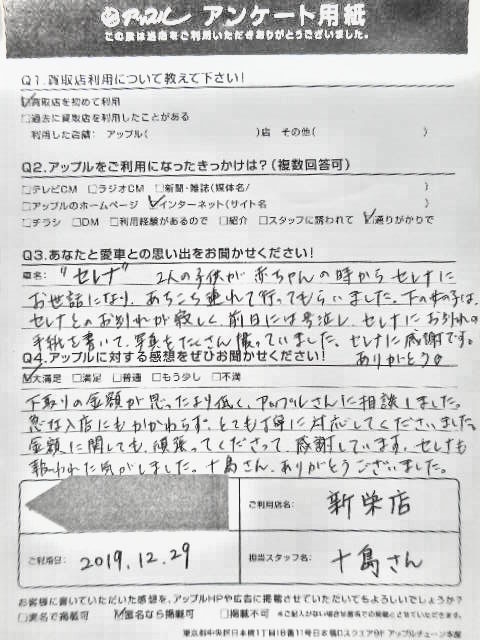 アップル アンケート用紙
この度は当店をご利用いただきありがとうございました。
Q1.買取店利用について教えて下さい!
☑買取店を初めて利用
□過去に買取店を利用したことがある
利用した店舗: アップル( )店 その他( )
Q2.アップルをご利用になったきっかけは?(複数回答可)
□テレビCM □ラジオCM □新聞・雑誌(媒体名/ )
□アップルのホームページ ☑インターネット(サイト名 )
□チラシ □DM □利用経験があるので □紹介 □スタッフに誘われて ☑通りがかりで
Q3.あなたと愛車との思い出をお聞かせください!
車名: "セレナ" 2人の子供が赤ちゃんの時からセレナに
お世話になり、あちこち連れて行ってもらいました。下の女の子は、
セレナとのお別れが寂しく、前日には号泣し、セレナにお別れの
手紙を書いて、写真をたくさん撮っていました。セレナに感謝です。
ありがとう
Q4.アップルに対する感想をぜひお聞かせください!
☑大満足 □満足 □普通 □もう少し □不満
下取りの金額が思ったより低く、アップルさんに相談しました。
急な入店にもかかわらず、とても丁寧に対応してくださいました。
金額に関しても、頑張ってくださって、感謝しています。セレナも
報われた気がしました。十島さん、ありがとうございました。
ご利用店名: 新栄店
ご利用日: 2019.12.29
担当スタッフ名: 十島さん
お客様に書いていただいた感想を、アップルHPや広告に掲載させていただいてもよろしいでしょうか?
□実名で掲載可 ☑匿名なら掲載可 □掲載不可
東京都中央区日本橋1丁目16番11号日本橋Dスクエア4F アップルチェーン本部